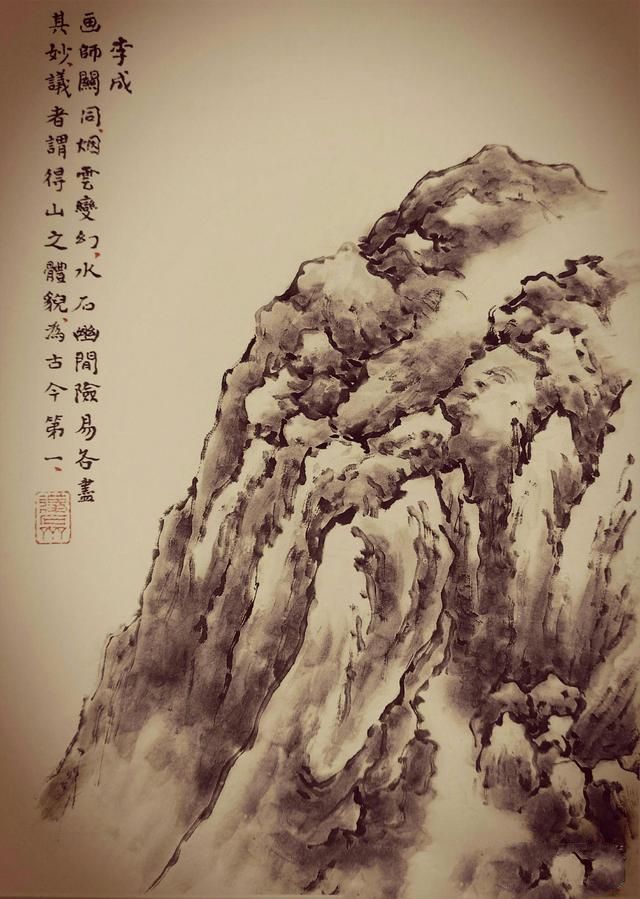 李成
画師關同、烟雲變幻、水石幽閒險易各盡
其妙、議者謂得山之體貌、為古今第一、